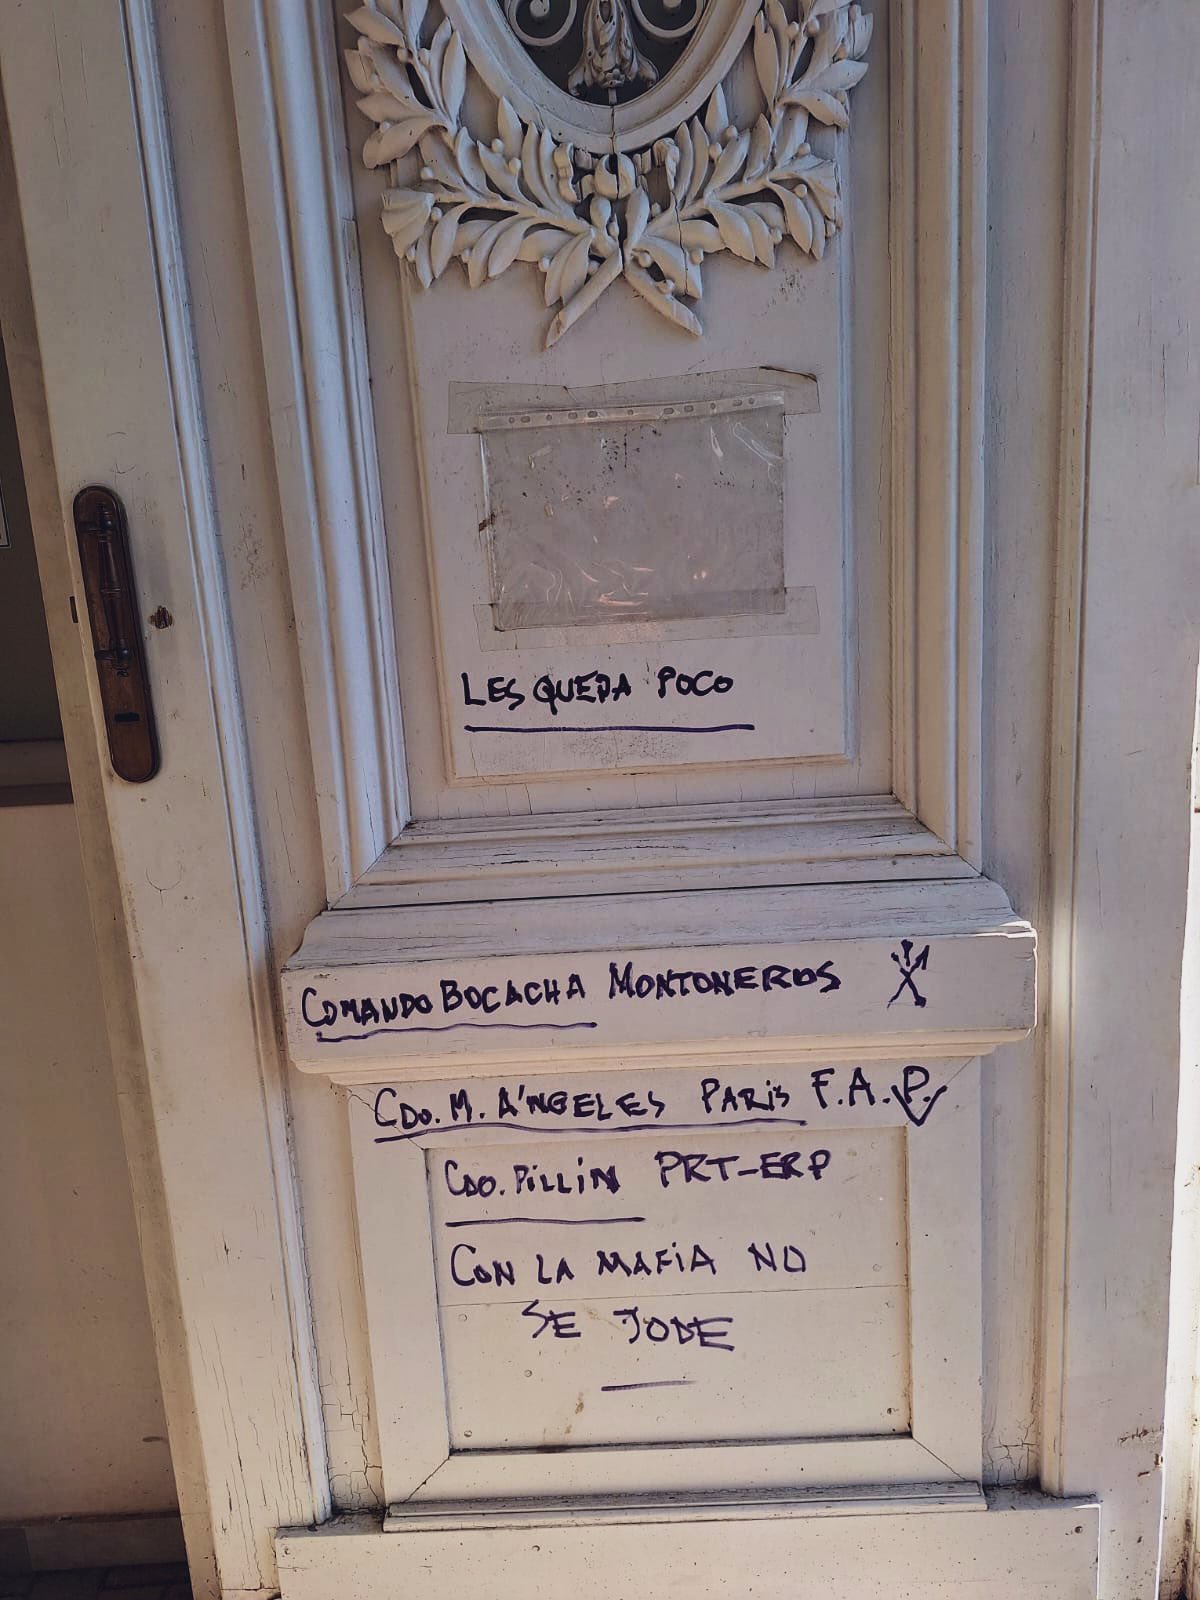 LES QUEDA POCO
COMANDO BOCACHA MONTONEROS
CDO. M. A'NGELES PARIS F.A.P.
CDO. PILLIN PRT-ERP
CON LA MAFIA NO
SE JODE